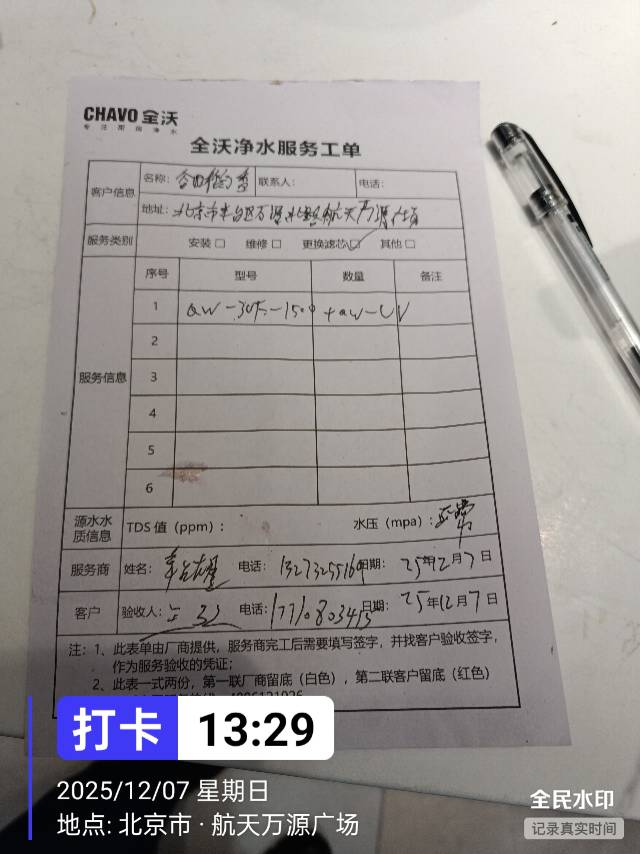 CHAVO 全沃
专注商用净水
全沃净水服务工单
客户信息
名称: 联系人: 电话:
地址: 北京市丰台区万源北路航天万源广场
服务类别 安装 □ 维修 □ 更换滤芯 ☑ 其他 □
服务信息
序号 型号 数量 备注
1 +QW-UV
2
3
4
5
6
源水水质信息 TDS 值（ppm）: 水压（mpa）: 正常
服务商 姓名: 电话: 日期: 25年12月7日
客户 验收人: 电话: 日期: 25年12月7日
注: 1、此表单由厂商提供，服务商完工后需要填写签字，并找客户验收签字，
作为服务验收的凭证;
2、此表一式两份，第一联厂商留底（白色），第二联客户留底（红色）
打卡 13:29
2025/12/07 星期日
地点: 北京市 · 航天万源广场
全民水印
记录真实时间